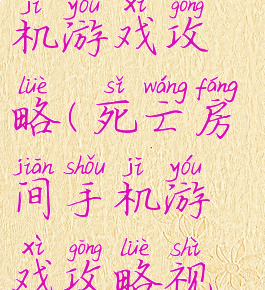 jī yóu xì gōng
机游戏攻
lüè sǐ wáng fáng
略(死亡房
jiān shǒu jī yóu
间手机游
xì gōng lüè shì
戏攻略视